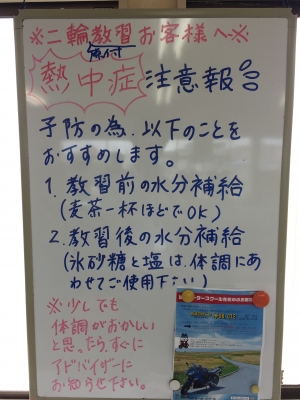 ※二輪教習お客様へ※
原付
熱中症注意報
予防の為、以下のことを
おすすめします。
1. 教習前の水分補給
(麦茶一杯ほどでOK)
2. 教習後の水分補給
(氷砂糖と塩は、体調にあ
わせてご使用下さい)
※少しでも
体調がおかしい
と思ったら、すぐに
アドバイザーに
お知らせ下さい。